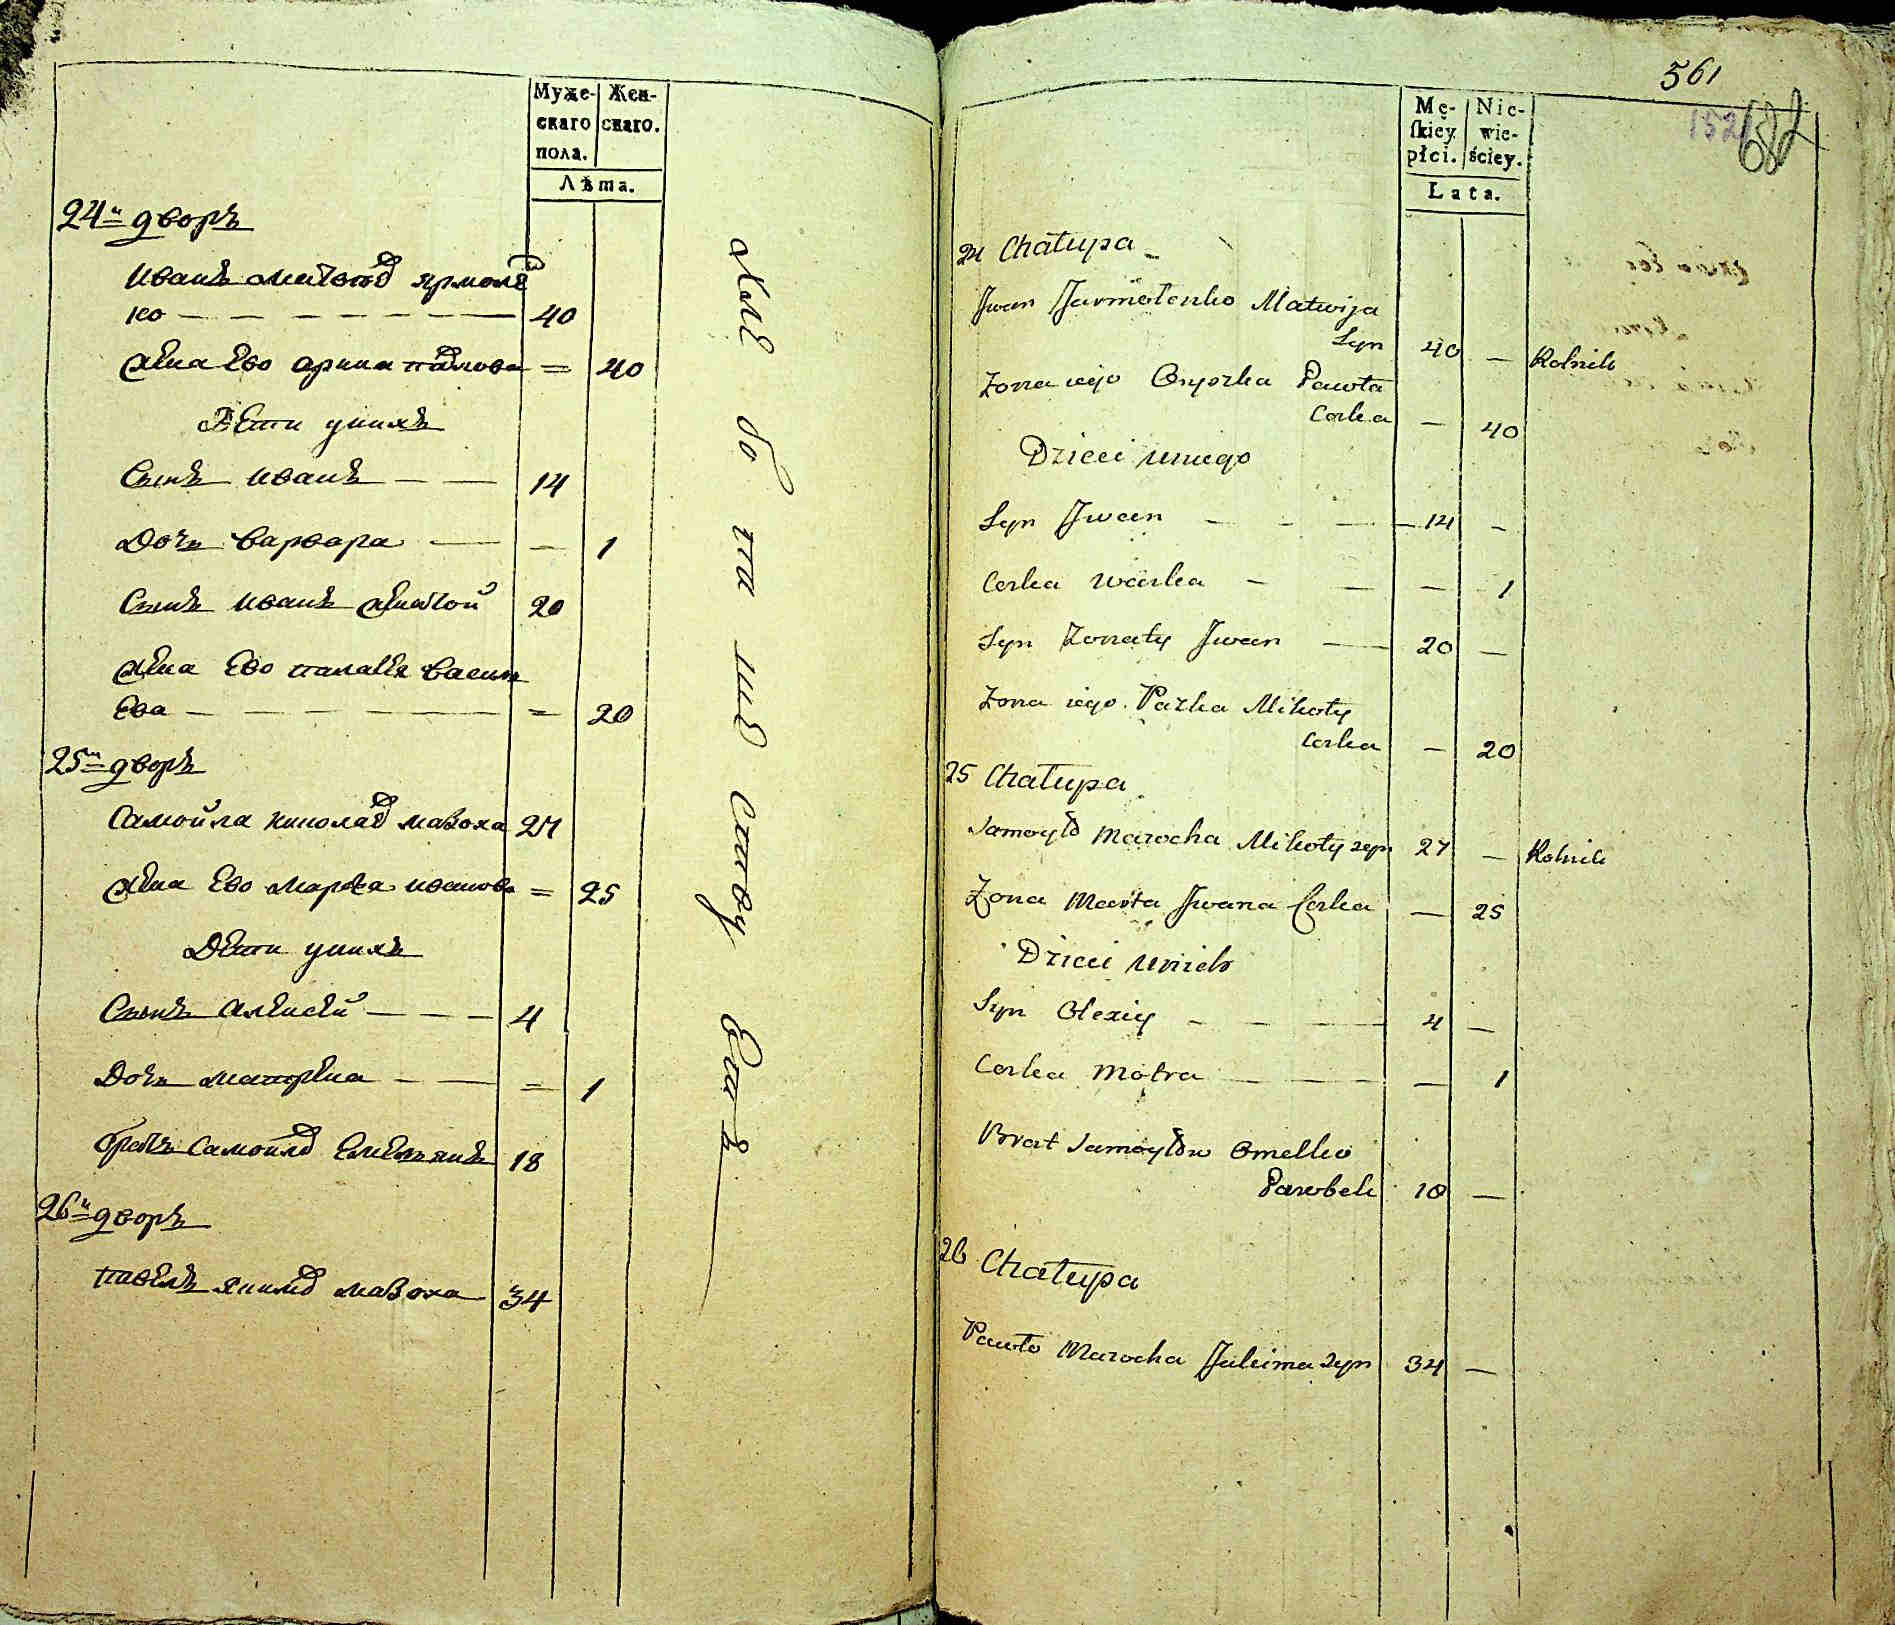 Муже-
скаго
пола.
Жен-
скаго.
Лѣта.
24й дворъ
Иванъ Матвѣев Ярмолѣ
ко — — — — — 40
Жена Ево Арина Павлова = 40
Дѣти у нихъ
Сынъ Иванъ — — 14
Дочь Варвара — — 1
Сынъ Иванъ женатой 20
Жена Ево Палагѣя Василь
Ева — — — — = 20
25й дворъ
Самойла Николаев Мазоха 27
Жена Ево Марѳа Иванова = 25
Дѣти у нихъ
Сынъ Алексѣй — — — 4
Дочь Матрѣна — — = 1
братъ Самойлов Емельянъ 18
26й дворъ
Павелъ Якимов Мазоха 34
хлѣбопашествуетъ
561
152
682
Mę-
skiey
płci.
Nie-
wie-
ściey.
Lata.
24 Chałupa
Iwan Jarmolenko Matwija
Syn 40 — Rolnik
Żona iego Oryszka Pawła
Corka — 40
Dzieci u niego
Syn Iwan — — — 14 —
Corka Warka — — — 1
Syn Żonaty Iwan — 20 —
Żona iego Pazka Mikoły
Corka — 20
25 Chałupa
Samoyło Mazocha Mikoły syn 27 — Rolnik
Żona Marta Iwana Corka — 25
Dzieci u nich
Syn Olexiy — — — 4 —
Corka Motra — — — — 1
Brat Samoyłow Omelko
Parobek 18 —
26 Chałupa
Pawło Mazocha Jakima syn 34 —